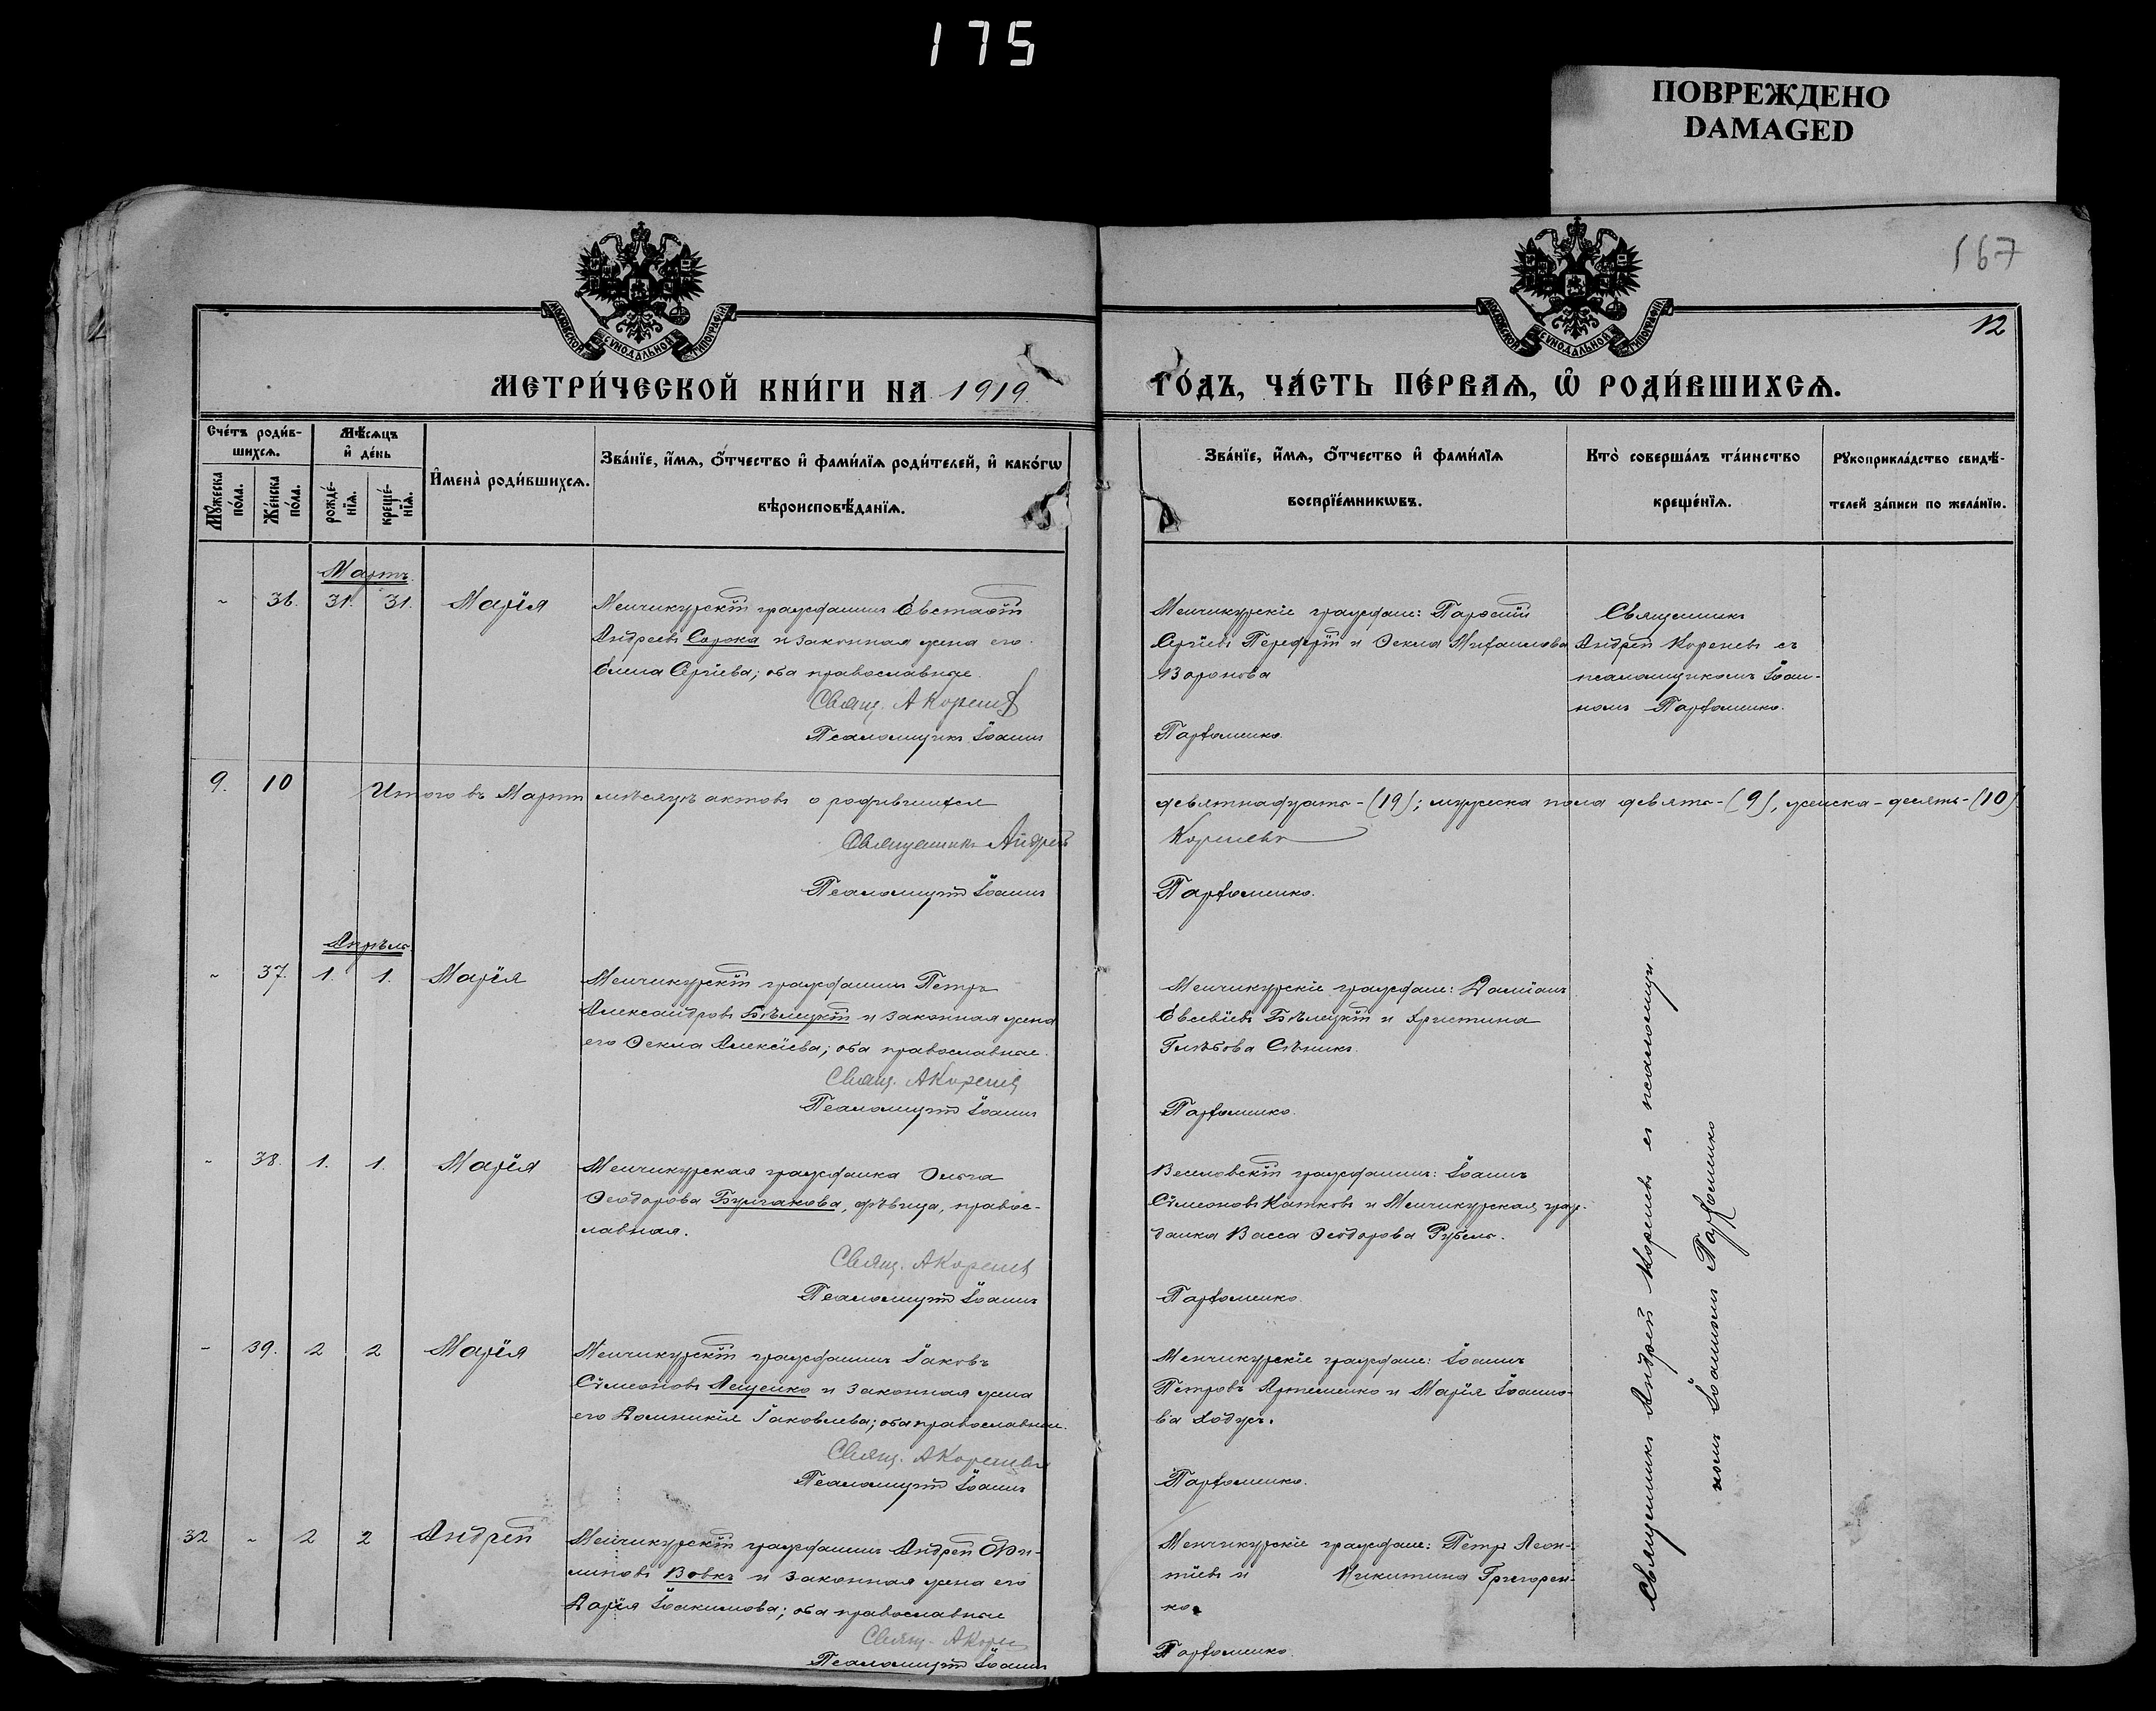 175
ПОВРЕЖДЕНО
DAMAGED
167
12
МОСКОВСКОЙ СѴНОДАЛЬНОЙ ТИПОГРАФІИ
МОСКОВСКОЙ СѴНОДАЛЬНОЙ ТИПОГРАФІИ
МЕТРИ́ЧЕСКОЙ КНИ́ГИ НА 1919 ГО́ДЪ, ЧА́СТЬ ПЕ́РВАѦ, Ѡ҆ РОДИ́ВШИХСѦ.
Сче́тъ роди́в-
шихсѧ.
Мѣ́сѧцъ
и҆ де́нь
Мꙋ́жеска
по́ла.
Же́нска
по́ла.
рожде́-
нїѧ.
креще́-
нїѧ.
И҆мена̀ роди́вшихсѧ.
Зва́нїе, и҆́мѧ, ѻ҆́тчество и҆ фами́лїѧ роди́телей, и҆ како́гѡ
вѣроисповѣ́данїѧ.
Зва́нїе, и҆́мѧ, ѻ҆́тчество и҆ фами́лїѧ
воспрїе́мникѡвъ.
Кто̀ соверша́лъ та́инство
креще́нїѧ.
Рꙋкоприкла́дство свидѣ́-
телей за́писи по жела́нїю.
Мартъ.
- 36. 31. 31. Марія
Менчикурскій гражданинъ Евстафій
Андреевъ Сорока и законная жена его
Елена Сергіева; оба православные.
Свящ. А Кореневъ
Псаломщикъ Іоаннъ
Менчикурскіе граждане: Тарасій
Сергіевъ Передерій и Ѳекла Михаилова
Воронова
Парфоменко.
Священникъ
Андрей Кореневъ съ
псаломщикомъ Іоан-
номъ Парфоменко.
9. 10 Итого въ Мартѣ мѣсяцѣ актовъ о родившихся девятнадцать-(19); мужеска пола девять-(9), женска-десять-(10)
Священникъ Андрей Кореневъ
Псаломщикъ Іоаннъ Парфоменко.
Апрѣль.
- 37. 1. 1. Марія
Менчикурскій гражданинъ Петръ
Александровъ Бѣлецкій и законная жена
его Ѳекла Алексіева; оба православные.
Свящ. А Кореневъ
Псаломщикъ Іоаннъ
Менчикурскіе граждане: Даміанъ
Евсевіевъ Бѣлецкій и Христина
Глѣбова Сѣникъ.
Парфоменко.
- 38. 1. 1. Марія
Менчикурская гражданка Ольга
Ѳеодорова Булгакова, дѣвица, правос-
лавная.
Свящ. А Кореневъ
Псаломщикъ Іоаннъ
Веселовскій гражданинъ: Іоаннъ
Сѵмеоновъ Катковъ и Менчикурская граж-
данка Васса Ѳеодорова Рубель.
Парфоменко.
- 39. 2 2 Марія
Менчикурскій гражданинъ Іаковъ
Сѵмеоновъ Лещенко и законная жена
его Домникія Іаковлева; оба православные.
Свящ. А Кореневъ
Псаломщикъ Іоаннъ
Менчикурскіе граждане: Іоаннъ
Петровъ Артеменко и Марія Іоанно-
ва Ходусъ.
Парфоменко.
32 - 2 2 Андрей
Менчикурскій гражданинъ Андрей Фи-
липовъ Вовкъ и законная жена его
Дарія Іоакимова; оба православные
Свящ. А Корен
Псаломщикъ Іоаннъ
Менчикурскіе граждане: Петръ Леон-
тіевъ и Никитина Григорен-
ко.
Парфоменко.
Священникъ Андрей Кореневъ съ псаломщи-
комъ Іоанномъ Парфоменко